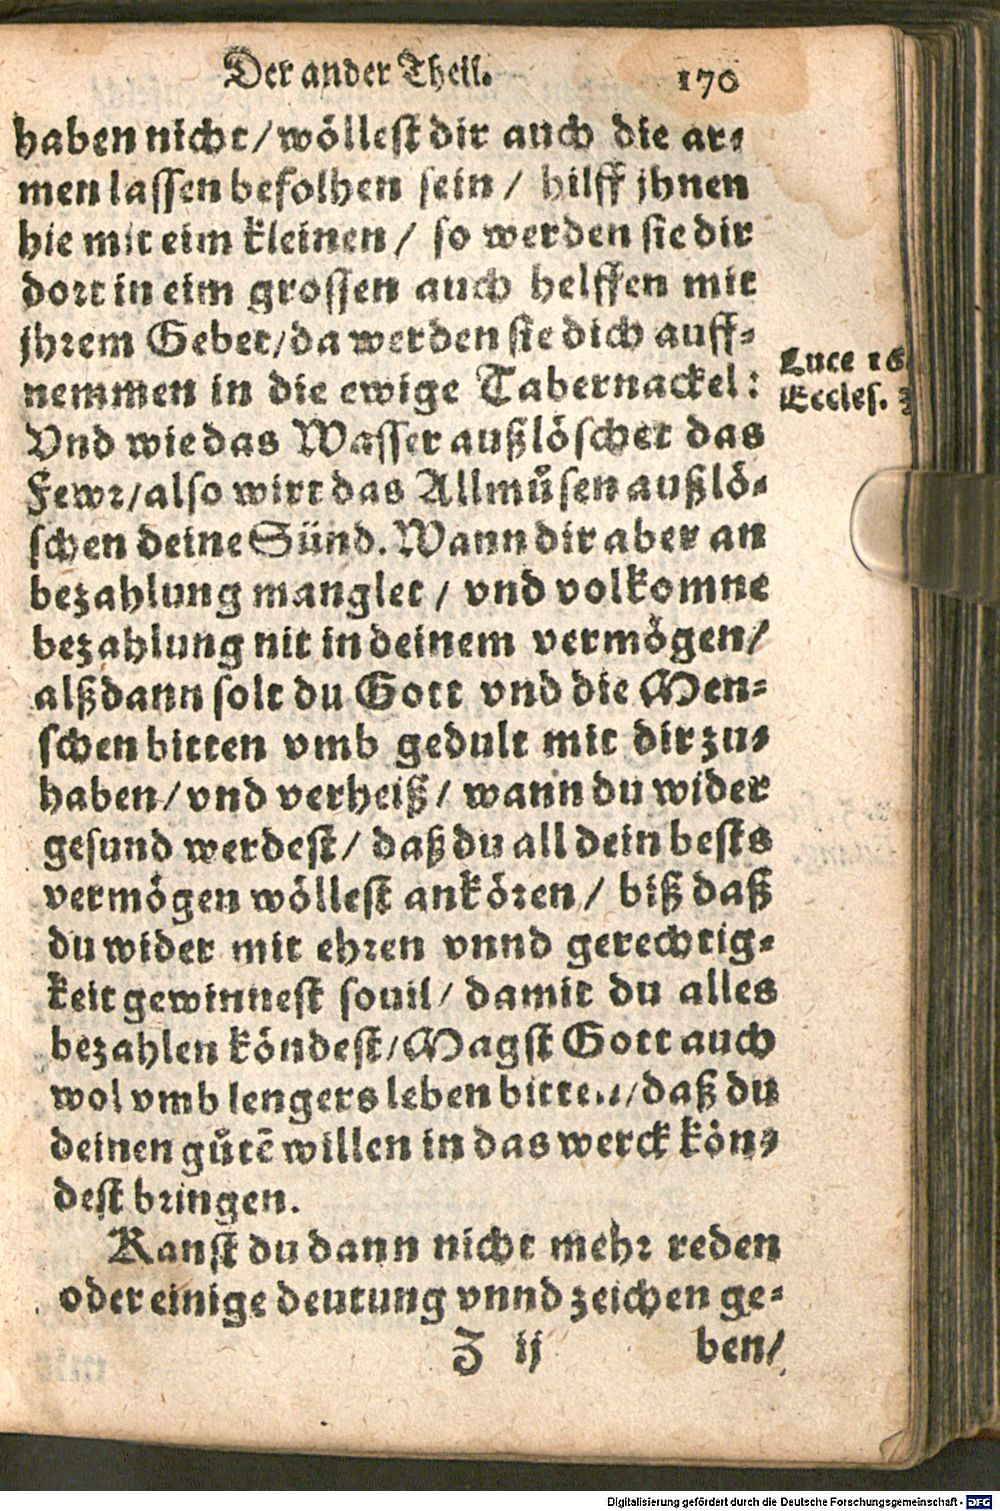 Der ander Theil. 170
haben nicht/wöllest dir auch die ar-
men lassen befolhen sein/ hilff jhnen
hie mit eim kleinen/ so werden sie dir
dort in eim grossen auch helffen mit
jhrem Gebet/da werden sie dich auff-
nemmen in die ewige Tabernackel:
Luce 16
Eccles. 3
Vnd wie das Wasser außlöschet das
Fewr/also wirt das Allmůsen außlö-
schen deine Sünd. Wann dir aber an
bezahlung manglet/ vnd volkomne
bezahlung nit in deinem vermögen/
alßdann solt du Gott vnd die Men-
schen bitten vmb gedult mit dir zu-
haben/vnd verheiß/ wann du wider
gesund werdest/ daß du all dein bests
vermögen wöllest ankören/ biß daß
du wider mit ehren vnnd gerechtig-
keit gewinnest souil/ damit du alles
bezahlen köndest/Magst Gott auch
wol vmb lengers leben bitten/daß du
deinen gůtē willen in das werck kön-
dest bringen.
Kanst du dann nicht mehr reden
oder einige deutung vnnd zeichen ge-
Z ij ben/
Digitalisierung gefördert durch die Deutsche Forschungsgemeinschaft - DFG